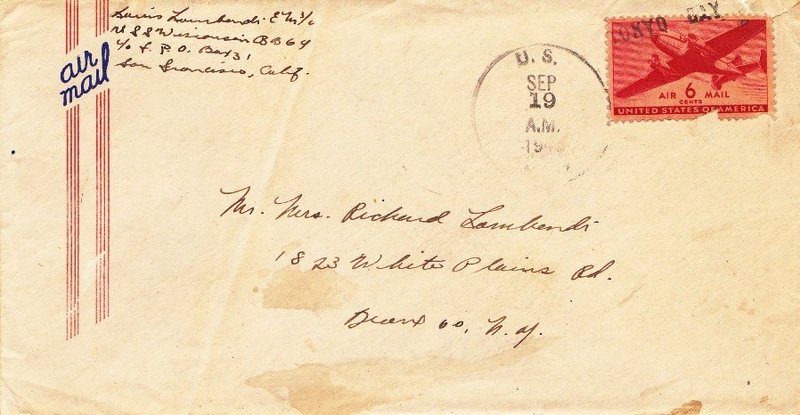 Louis Lombardi E M 3/c
U S S Wisconsin BB 64
c/o F. P. O. Box 31
San Francisco, Calif.
air
mail
U. S.
SEP
19
A.M.
TOKYO BAY
AIR 6 MAIL
CENTS
UNITED STATES OF AMERICA
Mr. Mrs. Richard Lombardi
1823 White Plains Rd.
Bronx 60, N. Y.